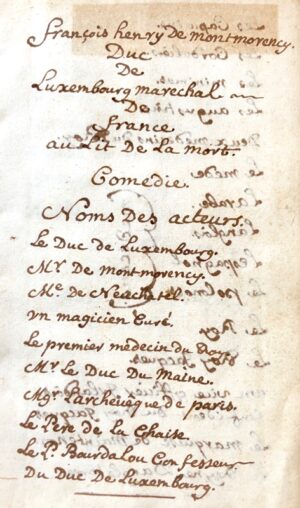 françois henry de montmorency.
Duc
De
Luxembourg marechal
De
france
au Lit De La mort.
Comedie.
Noms Des acteurs.
Le Duc de Luxembourg.
Mr. De montmorency.
Me. de Neuchatel.
vn magicien Curé.
Le premier medecin du Roy.
Mr. Le Duc Du Maine.
Mgr. L'archeueque de paris.
Le Pere de la Chaise.
Le P. Bourdalou Confesseur
Du Duc De Luxembourg.